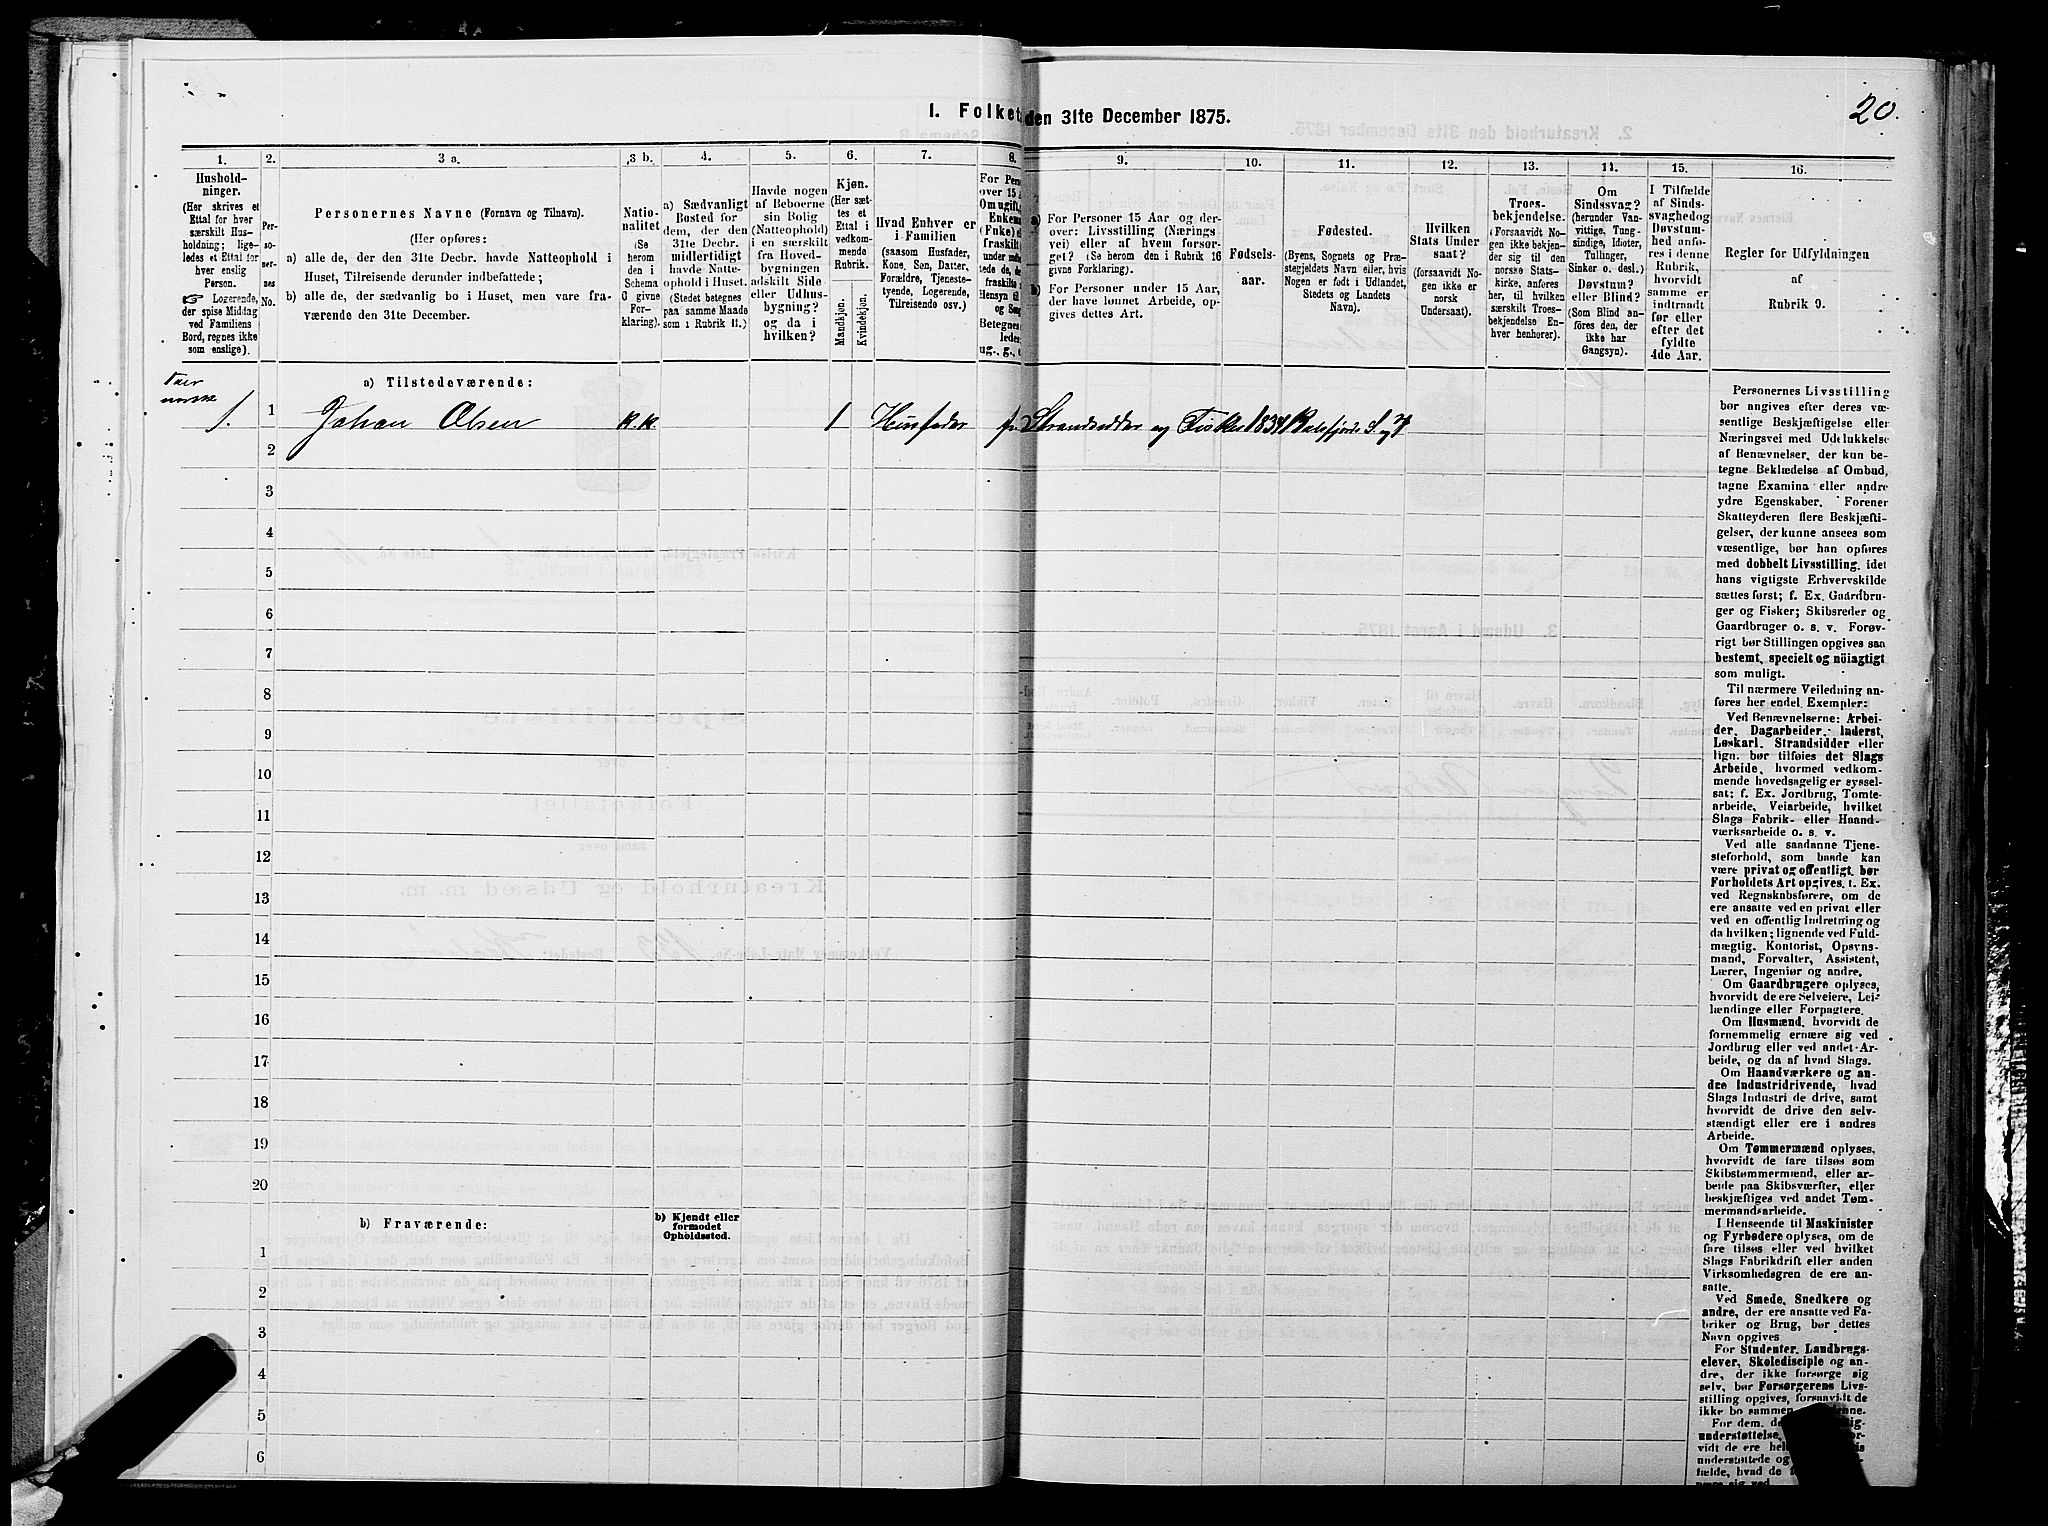 20.
I. Folket
den 31te December 1875.
1.
2.
3 a.
3 b.
4.
5.
6.
7.
8.
9.
10.
11.
12.
13.
14.
15.
16.
Hushold-
ninger.
(Her skrives et
Ettal for hver
særskilt Hus-
holdning; lige-
ledes et Ettal for
hver enslig
Person.
☞ Logerende,
der spise Middag
ved Familiens
Bord, regnes ikke
som enslige).
Per-
so-
ner-
nes
No.
Personernes Navne (Fornavn og Tilnavn).
(Her opføres:
a) alle de, der den 31te Decbr. havde Natteophold i
Huset, Tilreisende derunder indbefattede;
b) alle de, der sædvanlig bo i Huset, men vare fra-
værende den 31te December.
Natio-
nalitet
(Se
herom
den i
Schema
C givne
Forkla-
ring).
a) Sædvanligt
Bosted for
dem, der den
31te Decbr.
midlertidigt
havde Natte-
ophold i Huset.
(Stedet betegnes
paa samme Maade
som i Rubrik 11.)
Havde nogen
af Beboerne
sin Bolig
(Natteophold)
i en særskilt
fra Hoved-
bygningen
adskilt Side-
eller Udhus-
bygning?
og da i
hvilken?
Kjøn.
(Her sæt-
tes et
Ettal i
vedkom-
mende
Rubrik.
Mandkjøn.
Kvindekjøn.
Hvad Enhver er
i Familien
(saasom Husfader,
Kone, Søn, Datter,
Forældre, Tjeneste-
tyende, Logerende,
Tilreisende osv.)
For Pers
over 15 A
Om ugift,
Enkema
(Enke) e
fraskilt
Betegnes
ledes
ug., g., e
a) For Personer 15 Aar og der-
over: Livsstilling (Nærings
vei) eller af hvem forsør-
get? (Se herom den i Rubrik 16
givne Forklaring).
b) For Personer under 15 Aar,
der have lønnet Arbeide, op-
gives dettes Art.
Fødsels-
aar.
Fødested.
(Byens, Sognets og Præ-
stegjeldets Navn eller, hvis
Nogen er født i Udlandet,
Stedets og Landets
Navn).
Hvilken
Stats Under
saat?
(forsaavidt No-
gen ikke er
norsk
Undersaat).
Troes-
bekjendelse.
(Forsaavidt Nogen
ikke bekjen-
der sig til den
norske Stats-
kirke, anføres
her, til hvilken
særskilt Troes-
bekjendelse En-
hver henhører).
Om
Sindssvag?
(herunder Van-
vittige, Tung-
sindige, Idioter,
Tullinger,
Sinker o. desl.)
Døvstum?
eller Blind?
(Som Blind an-
føres den, der
ikke har
Gangsyn).
I Tilfælde
af Sinds-
svaghed og
Døvstum-
hed anfø-
res i denne
Rubrik,
hvorvidt
samme er
indtraadt
før eller
efter det
fyldte
4de Aar.
Regler for Udfyldningen
af
Rubrik 9.
a) Tilstedeværende:
1. 1 Johan Olsen 1 Husfader Strandsidder og Fisker 1834 Balsfjords S. og P.
2
3
4
5
6
7
8
9
10
11
12
13
14
15
16
17
18
19
20
b) Fraværende:
b) Kjendt eller
formodet
Opholdssted.
1
2
3
4
5
6
Personernes Livsstilling
bør angives efter deres væ-
sentlige Beskjæftigelse eller
Næringsvei med Udelukkelse
af Benævnelser, der kun be-
tegne Beklædelse af Ombud,
tagne Examina eller andre
ydre Egenskaber. Forener
Skatteyderen flere Beskjæfti-
gelser, der kunne ansees som
væsentlige, bør han opføres
med dobbelt Livsstilling, idet
hans vigtigste Erhvervskilde
sættes først; f. Ex. Gaardbru-
ger og Fisker; Skibsreder og
Gaardbruger o. s. v. Forøv-
rigt bør Stillingen opgives saa
bestemt, specielt og nöiagtigt
som muligt.
Til nærmere Veiledning an-
føres her endel Exempler:
Ved Benævnelserne: Arbei-
der, Dagarbeider, Inderst,
Løskarl, Strandsidder eller
lign. bør tilføies det Slags
Arbeide, hvormed vedkom-
mende hovedsagelig er syssel-
sat; f. Ex. Jordbrug, Tomte-
arbeide, Veiarbeide, hvilket
Slags Fabrik- eller Haand-
værksarbeide o. s. v.
Ved alle saadanne Tjene-
steforhold, som baade kan
være privat og offentligt, bør
Forholdets Art opgives, f. Ex.
ved Regnskabsførere, om de
ere ansatte ved en privat eller
ved en offentlig Indretning og
da hvilken; lignende ved Fuld-
mægtig, Kontorist, Opsyns-
mand, Forvalter, Assistent,
Lærer, Ingeniør og andre.
Om Gaardbrugere oplyses,
hvorvidt de ere Selveiere, Lei-
lændinge eller Forpagtere.
Om Husmænd, hvorvidt de
fornemmelig ernære sig ved
Jordbrug eller ved andet Ar-
beide, og da af hvad Slags.
Om Haandværkere og an-
dre Industridrivende, hvad
Slags Industri de drive, samt
hvorvidt de drive den selv-
stændigt eller ere i andres
Arbeide.
Om Tømmermænd oplyses,
hvorvidt de fare tilsøs som
Skibstømmermænd, eller ar-
beide paa Skibsværfter, eller
beskjæftiges ved andet Tøm-
mermandsarbeide.
I Henseende til Maskinister
og Fyrbødere oplyses, om de
fare tilsøs eller ved hvilket
Slags Fabrikdrift eller anden
Virksomhedsgren de ere an-
satte.
Ved Smede, Snedkere og
andre, der ere ansatte ved Fa-
briker og Brug, bør dettes
Navn opgives
For Studenter, Landbrugs-
elever, Skoledisciple og an-
dre, der ikke forsørge sig
selv, bør Forsørgerens Livs-
stilling opgives, forsaavidt de
ikke bo sammen
For dem, de
understøttelse,
vidt de ere
understøttede og
fælde, hvad de